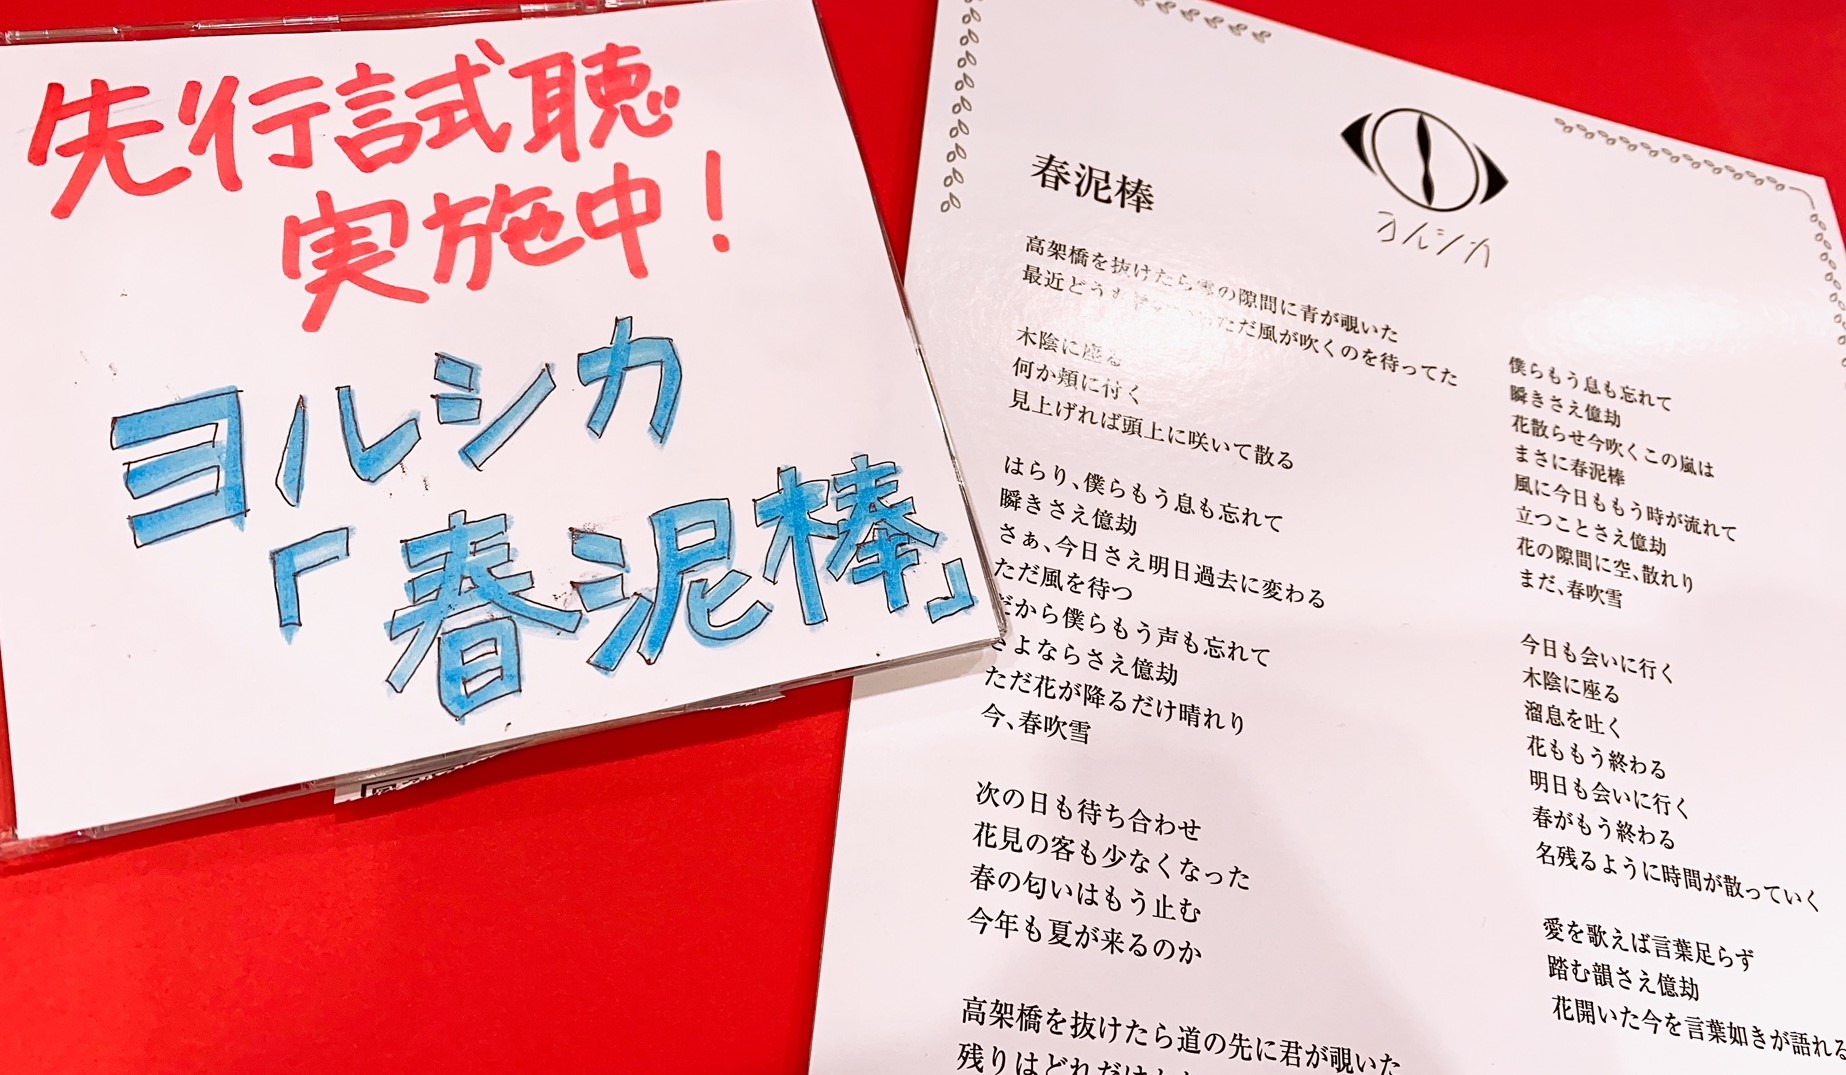 先行試聴
実施中!
ヨルシカ
「春泥棒」
ヨルシカ
春泥棒
高架橋を抜けたら の隙間に青が覗いた
最近どうも ただ風が吹くのを待ってた
木陰に座る
何か頬に付く
見上げれば頭上に咲いて散る
はらり、僕らもう息も忘れて
瞬きさえ億劫
さぁ、今日さえ明日過去に変わる
ただ風を待つ
だから僕らもう声も忘れて
さよならさえ億劫
ただ花が降るだけ晴れり
今、春吹雪
次の日も待ち合わせ
花見の客も少なくなった
春の匂いはもう止む
今年も夏が来るのか
高架橋を抜けたら道の先に君が覗いた
残りはどれだけ
僕らもう息も忘れて
瞬きさえ億劫
花散らせ今吹くこの嵐は
まさに春泥棒
風に今日ももう時が流れて
立つことさえ億劫
花の隙間に空、散れり
まだ、春吹雪
今日も会いに行く
木陰に座る
溜息を吐く
花ももう終わる
明日も会いに行く
春がもう終わる
名残るように時間が散っていく
愛を歌えば言葉足らず
踏む韻さえ億劫
花開いた今を言葉如きが語れる